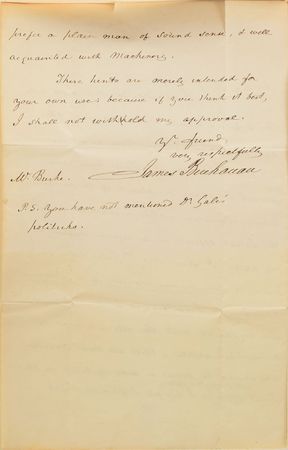 prefer a plain man of sound sense, & well
acquainted with Machinery.
These hints are merely intended for
your own use: because if you think it best,
I shall not withhold my approval.
Yr. friend,
very respectfully
James Buchanan
Mr. Burke.
P.S. You have not mentioned Dr Gale's
politicks.